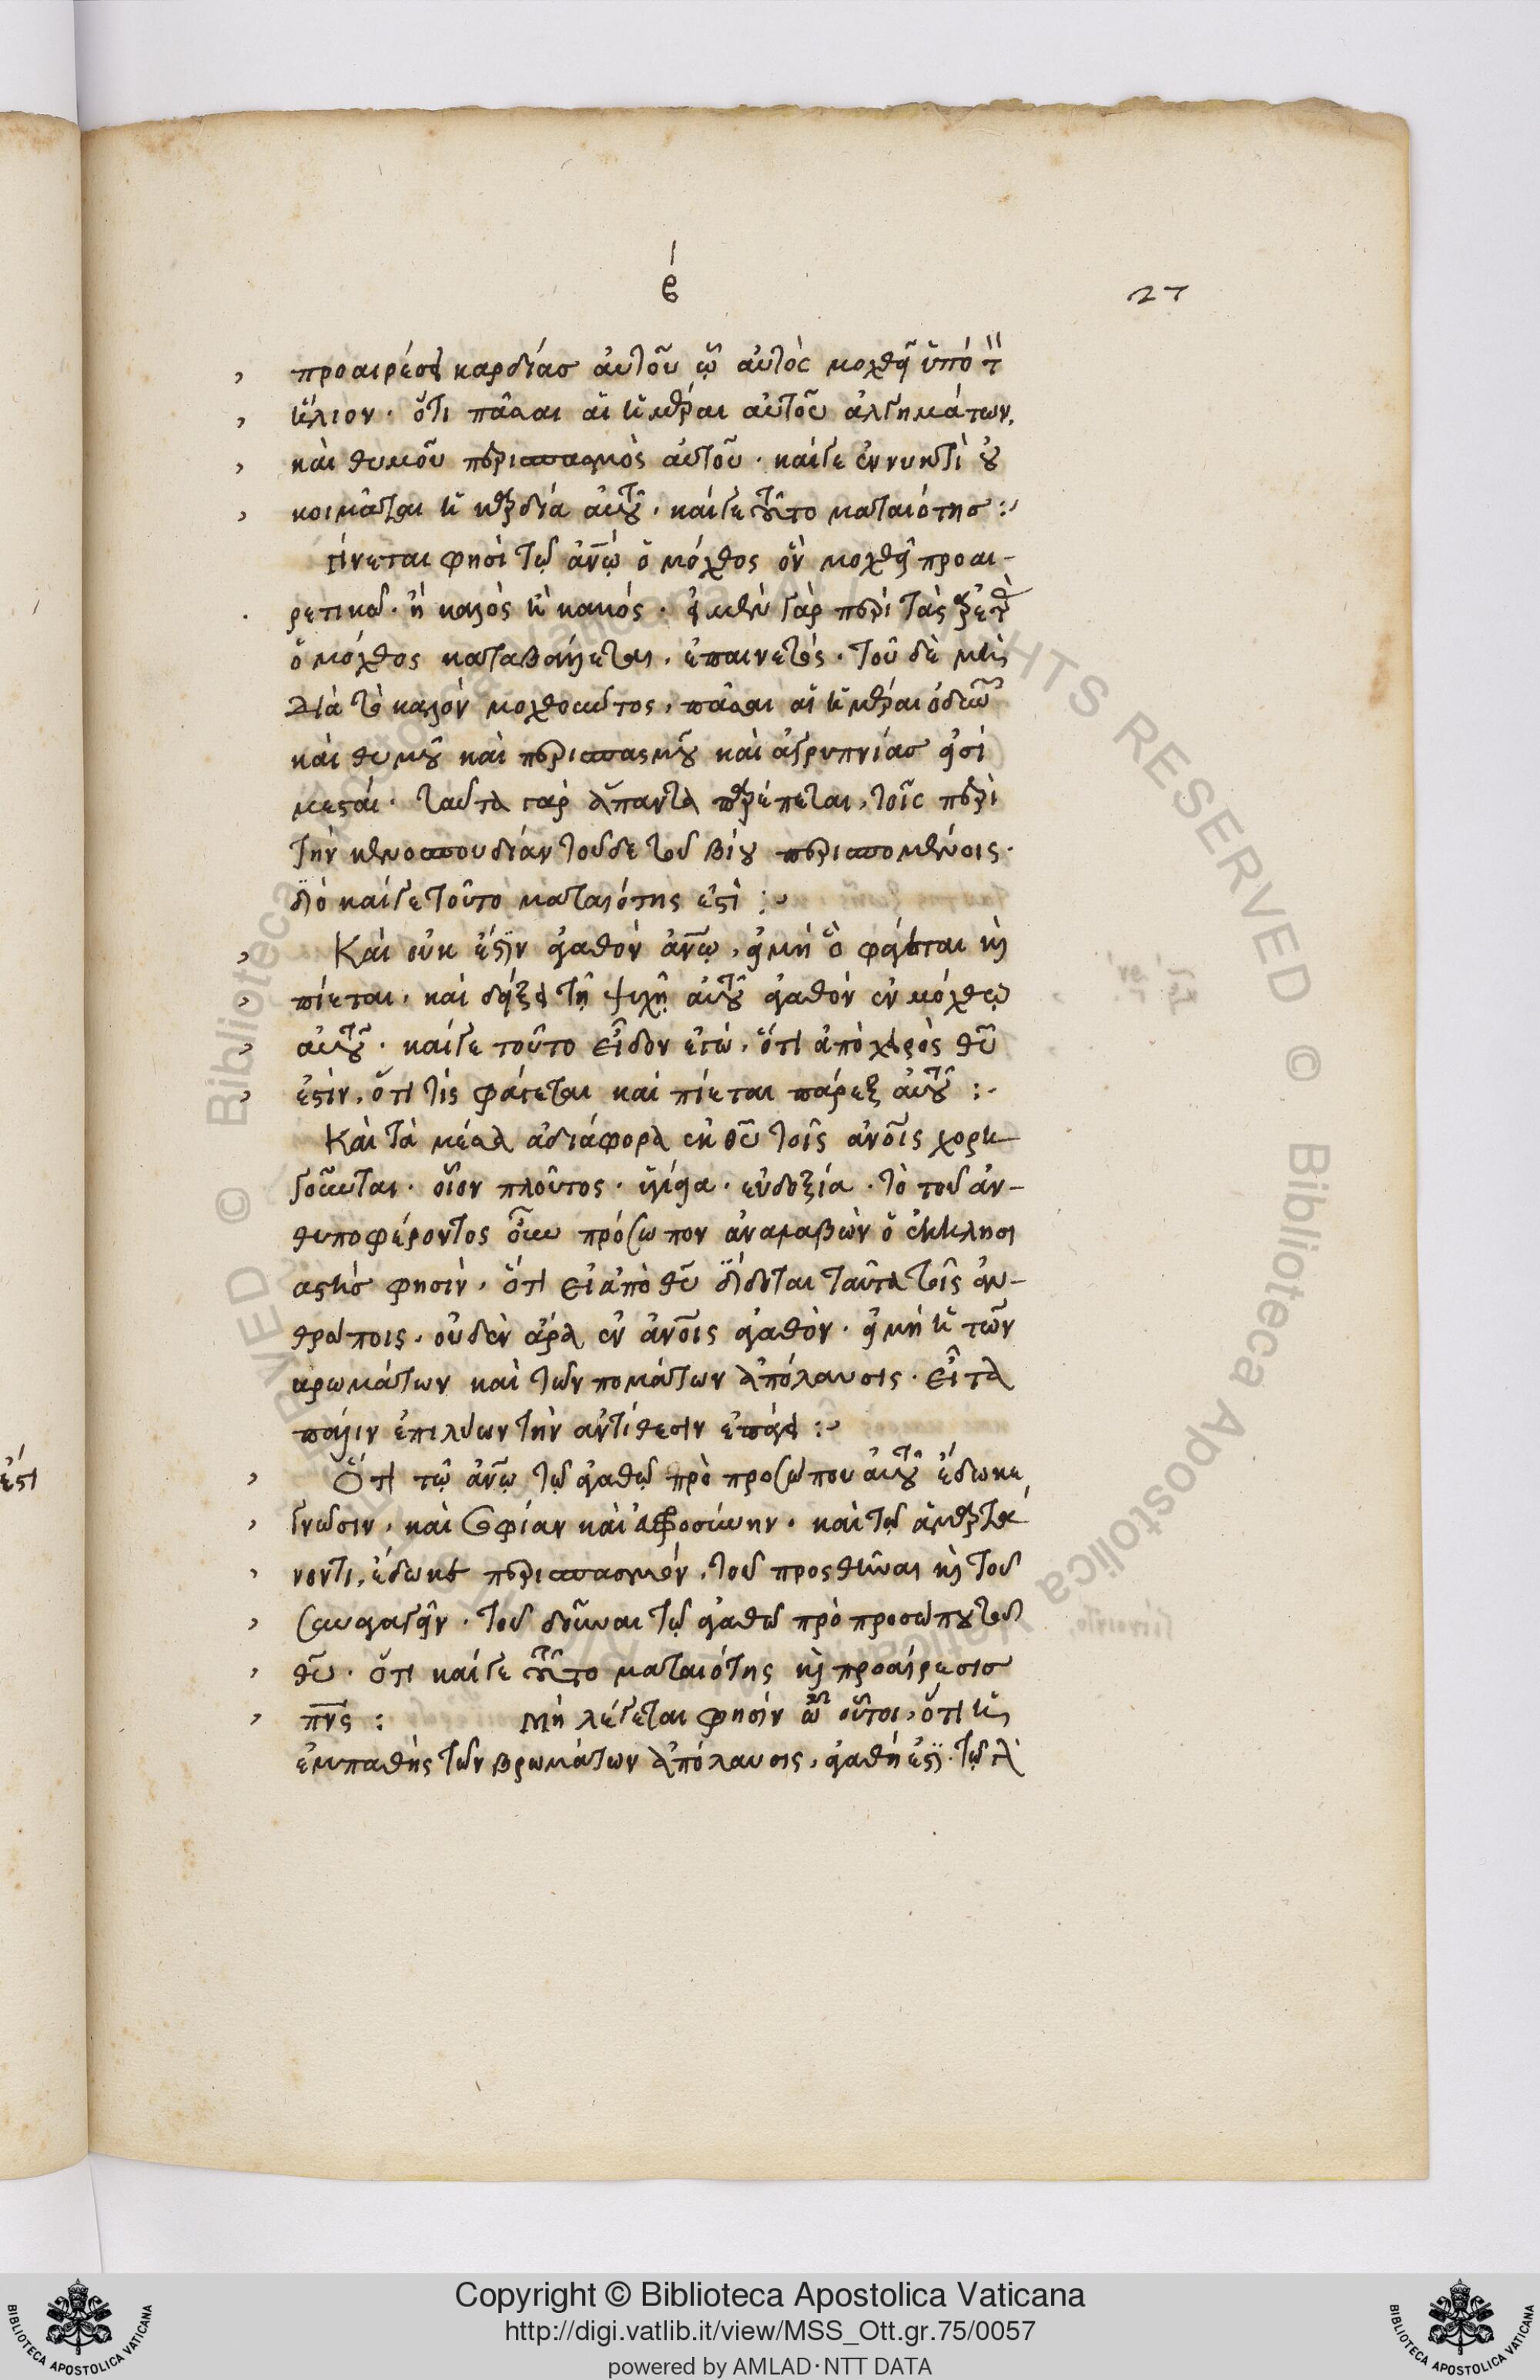 β
27
προαιρέσει καρδίας αὐτοῦ ᾧ αὐτὸς μοχθεῖ ὑπὸ τ
ἥλιον· ὅτι πᾶσαι αἱ ἡμέραι αὐτοῦ ἀλγημάτων,
καὶ θυμοῦ περισπασμὸς αὐτοῦ· καί γε ἐν νυκτὶ οὐ
κοιμᾶται ἡ καρδία αὐτοῦ· καί γε τοῦτο ματαιότης :~
γίνεται φησὶ τῷ ἀνω ὁ μόχθος ὃν μοχθεῖ προαι-
ρετικῶ· ἢ καλὸς ἢ κακός· εἰ μὲν γὰρ περὶ τὰς ἀρετὰς
ὁ μόχθος καταβάλλεται, ἐπαινετός· τοῦ δὲ μὴ
διὰ τὸ καλὸν μοχθοῦντος, πᾶσαι αἱ ἡμέραι ὀδυνῶν
καὶ θυμοῦ καὶ περισπασμοῦ καὶ ἀγρυπνίας εἰσὶ
μεσταί· ταῦτα γὰρ ἅπαντα παρέπεται, τοῖς περὶ
τὴν κενοσπουδίαν τοῦδε τοῦ βίου περισπομένοις·
διὸ καί γε τοῦτο ματαιότης ἐστὶ :~
Καὶ οὐκ ἔστιν ἀγαθὸν ἀνω, εἰ μὴ ὃ φάγεται καὶ
πίεται, καὶ δείξει τῇ ψυχῇ αὐτοῦ ἀγαθὸν ἐν μόχθῳ
αὐτοῦ· καί γε τοῦτο εἶδον ἐγώ, ὅτι ἀπὸ χειρὸς θυ
ἐστιν, ὅτι τίς φάγεται καὶ πίεται πάρεξ αὐτοῦ :~
Καὶ τὰ μέσα ἀδιάφορα ἐκ θυ τοῖς ἀνοις χορη
γοῦνται· οἷον πλοῦτος· ὑγίεια· εὐδοξία· τὸ τοῦ ἀν-
θυποφέροντος οὖν πρόσωπον ἀναλαβὼν ὁ ἐκκλησι
αστὴς φησὶν, ὅτι εἰ ἀπὸ θυ δίδοται ταῦτα τοῖς ἀν-
θρώποις, οὐδὲν ἄρα ἐν ἀνοις ἀγαθὸν· εἰ μὴ ἡ τῶν
βρωμάτων καὶ τῶν πομάτων ἀπόλαυσις· εἶτα
πάλιν ἐπιλύων τὴν ἀντίθεσιν ἐπάγει :~
Ὅτι τῷ ἀνω τῷ ἀγαθῷ πρὸ προσώπου αὐτοῦ ἔδωκε
γνῶσιν, καὶ σοφίαν καὶ εὐφροσύνην· καὶ τῷ ἁμαρτά
νοντι, ἔδωκε περισπασμόν, τοῦ προσθεῖναι καὶ τοῦ
συναγαγεῖν· τοῦ δοῦναι τῷ ἀγαθῷ πρὸ προσώπου τοῦ
θυ· ὅτι καί γε τοῦτο ματαιότης καὶ προαίρεσις
πνς : Μὴ λέγεται φησὶν ὦ οὗτοι, ὅτι ἡ
ἐμπαθὴς τῶν βρωμάτων ἀπόλαυσις, ἀγαθή ἐστι· τῷ
ἐστι
Copyright © Biblioteca Apostolica Vaticana
http://digi.vatlib.it/view/MSS_Ott.gr.75/0057
powered by AMLAD·NTT DATA